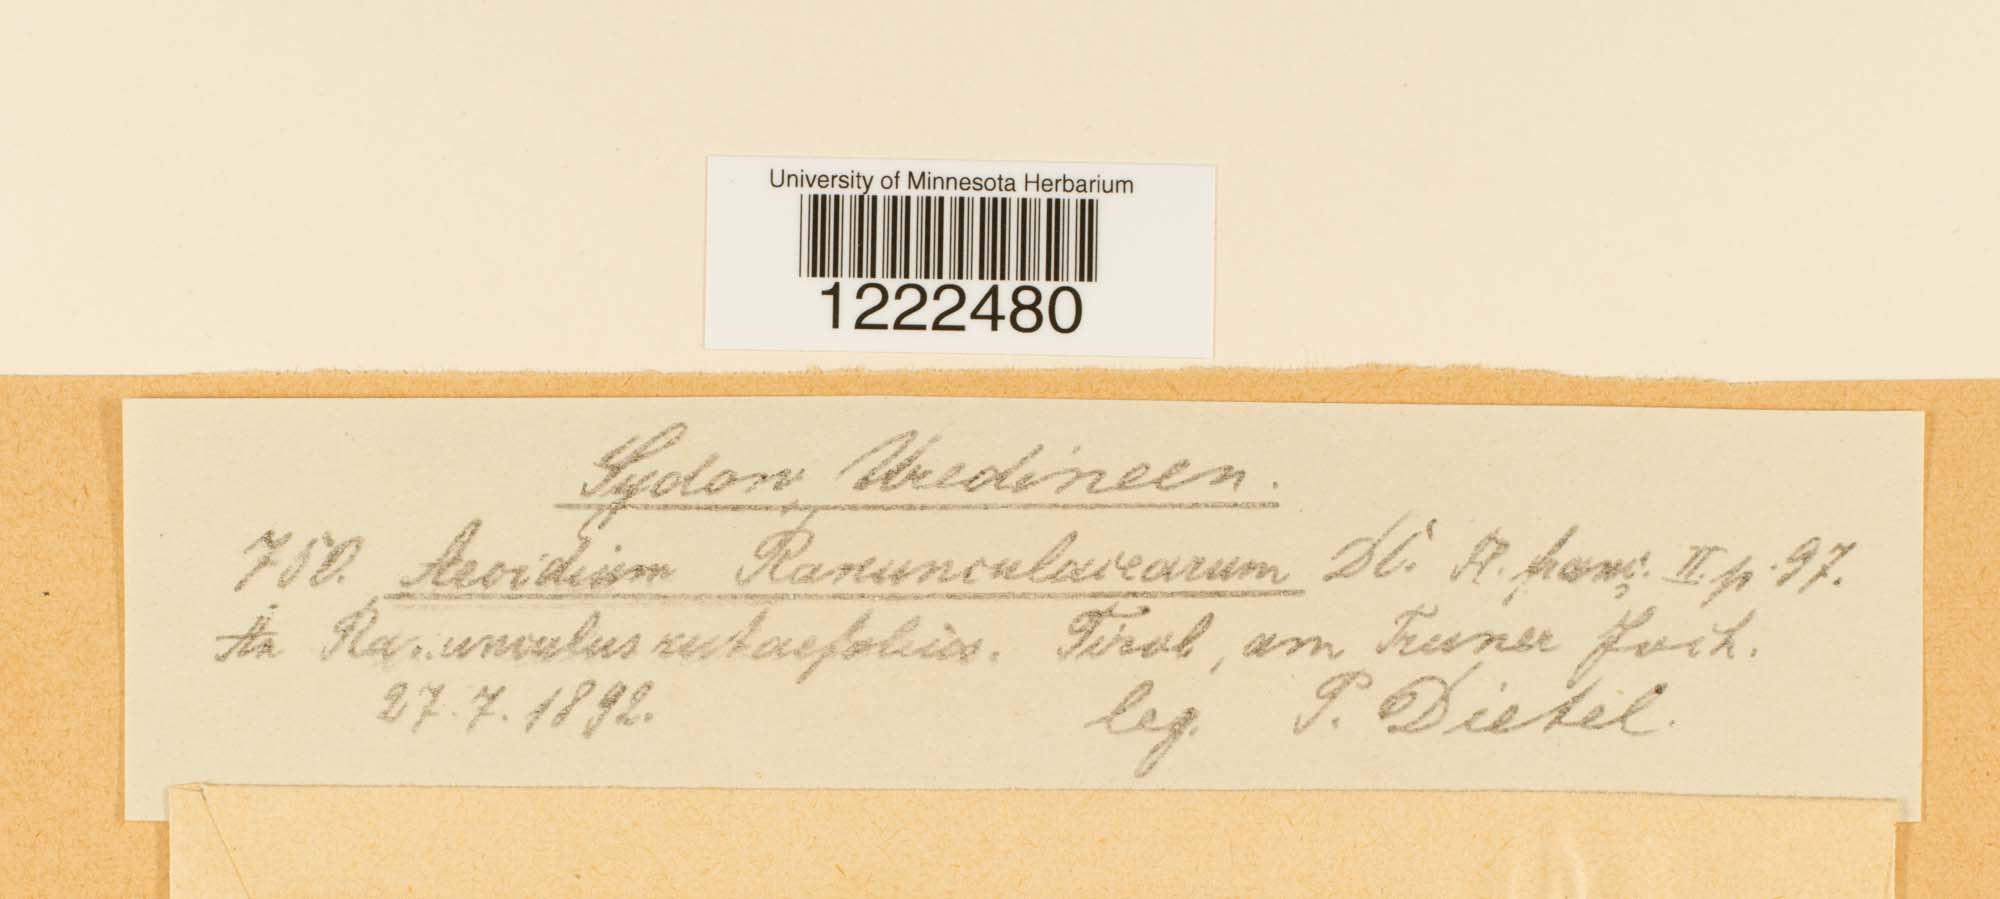 University of Minnesota Herbarium
1222480
Sydow, Uredineen.
750. Aecidium Ranunculacearum DC. Fl. franç. II. p. 97.
An Ranunculus rutaefolius. Tirol, am Truner Joch.
27. 7. 1892. leg. P. Dietel.